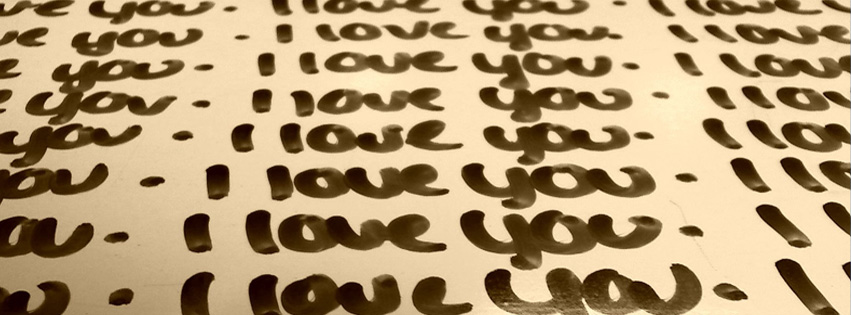 ove you. I love you. I love
ve you. I love you. I love
e you. I love you. I lov
e you. I love you. I lov
you. I love you. I lo
you. I love you. I l
ou. I love you. I
u. I love you. I